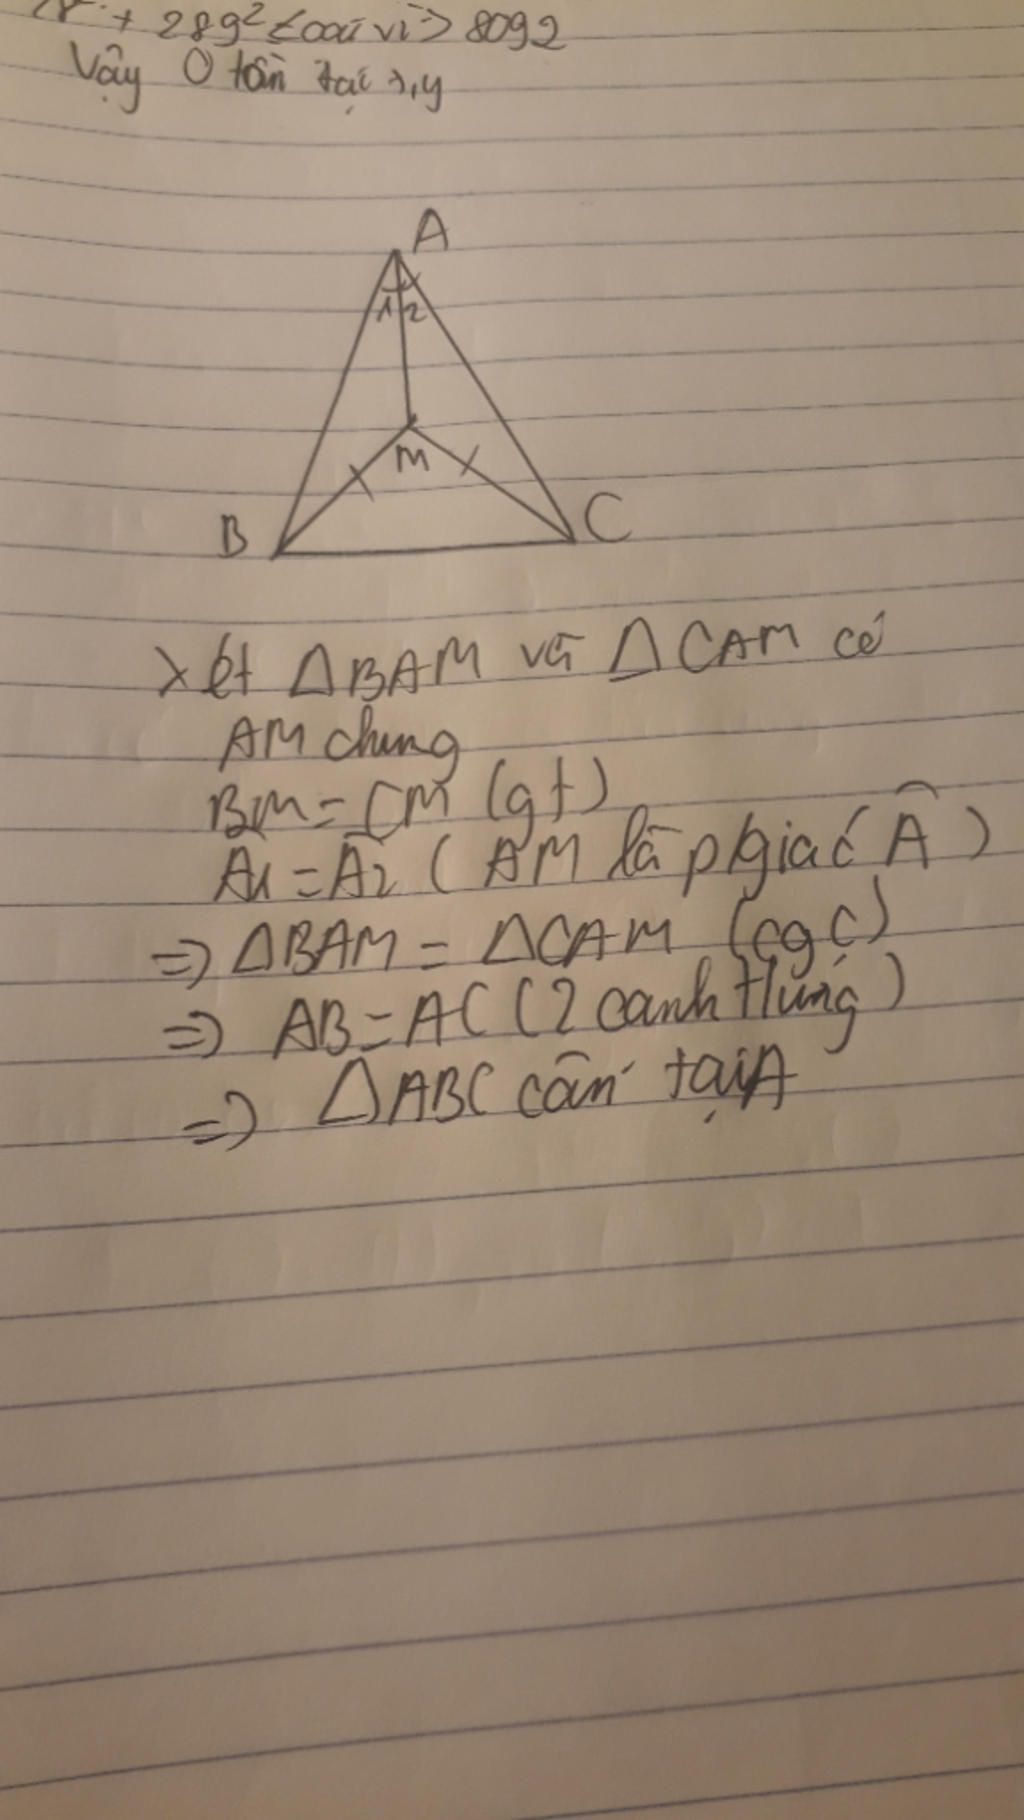 + 28y² < (loại vì > 8092
Vậy 0 tồn tại x, y
A
1 2
M
B
C
Xét △BAM và △CAM có
AM chung
BM = CM (gt)
A1 = A2 ( AM là p/giác Â )
=> △BAM = △CAM (cgc)
=> AB = AC (2 cạnh tứng)
=> △ABC cân tại A